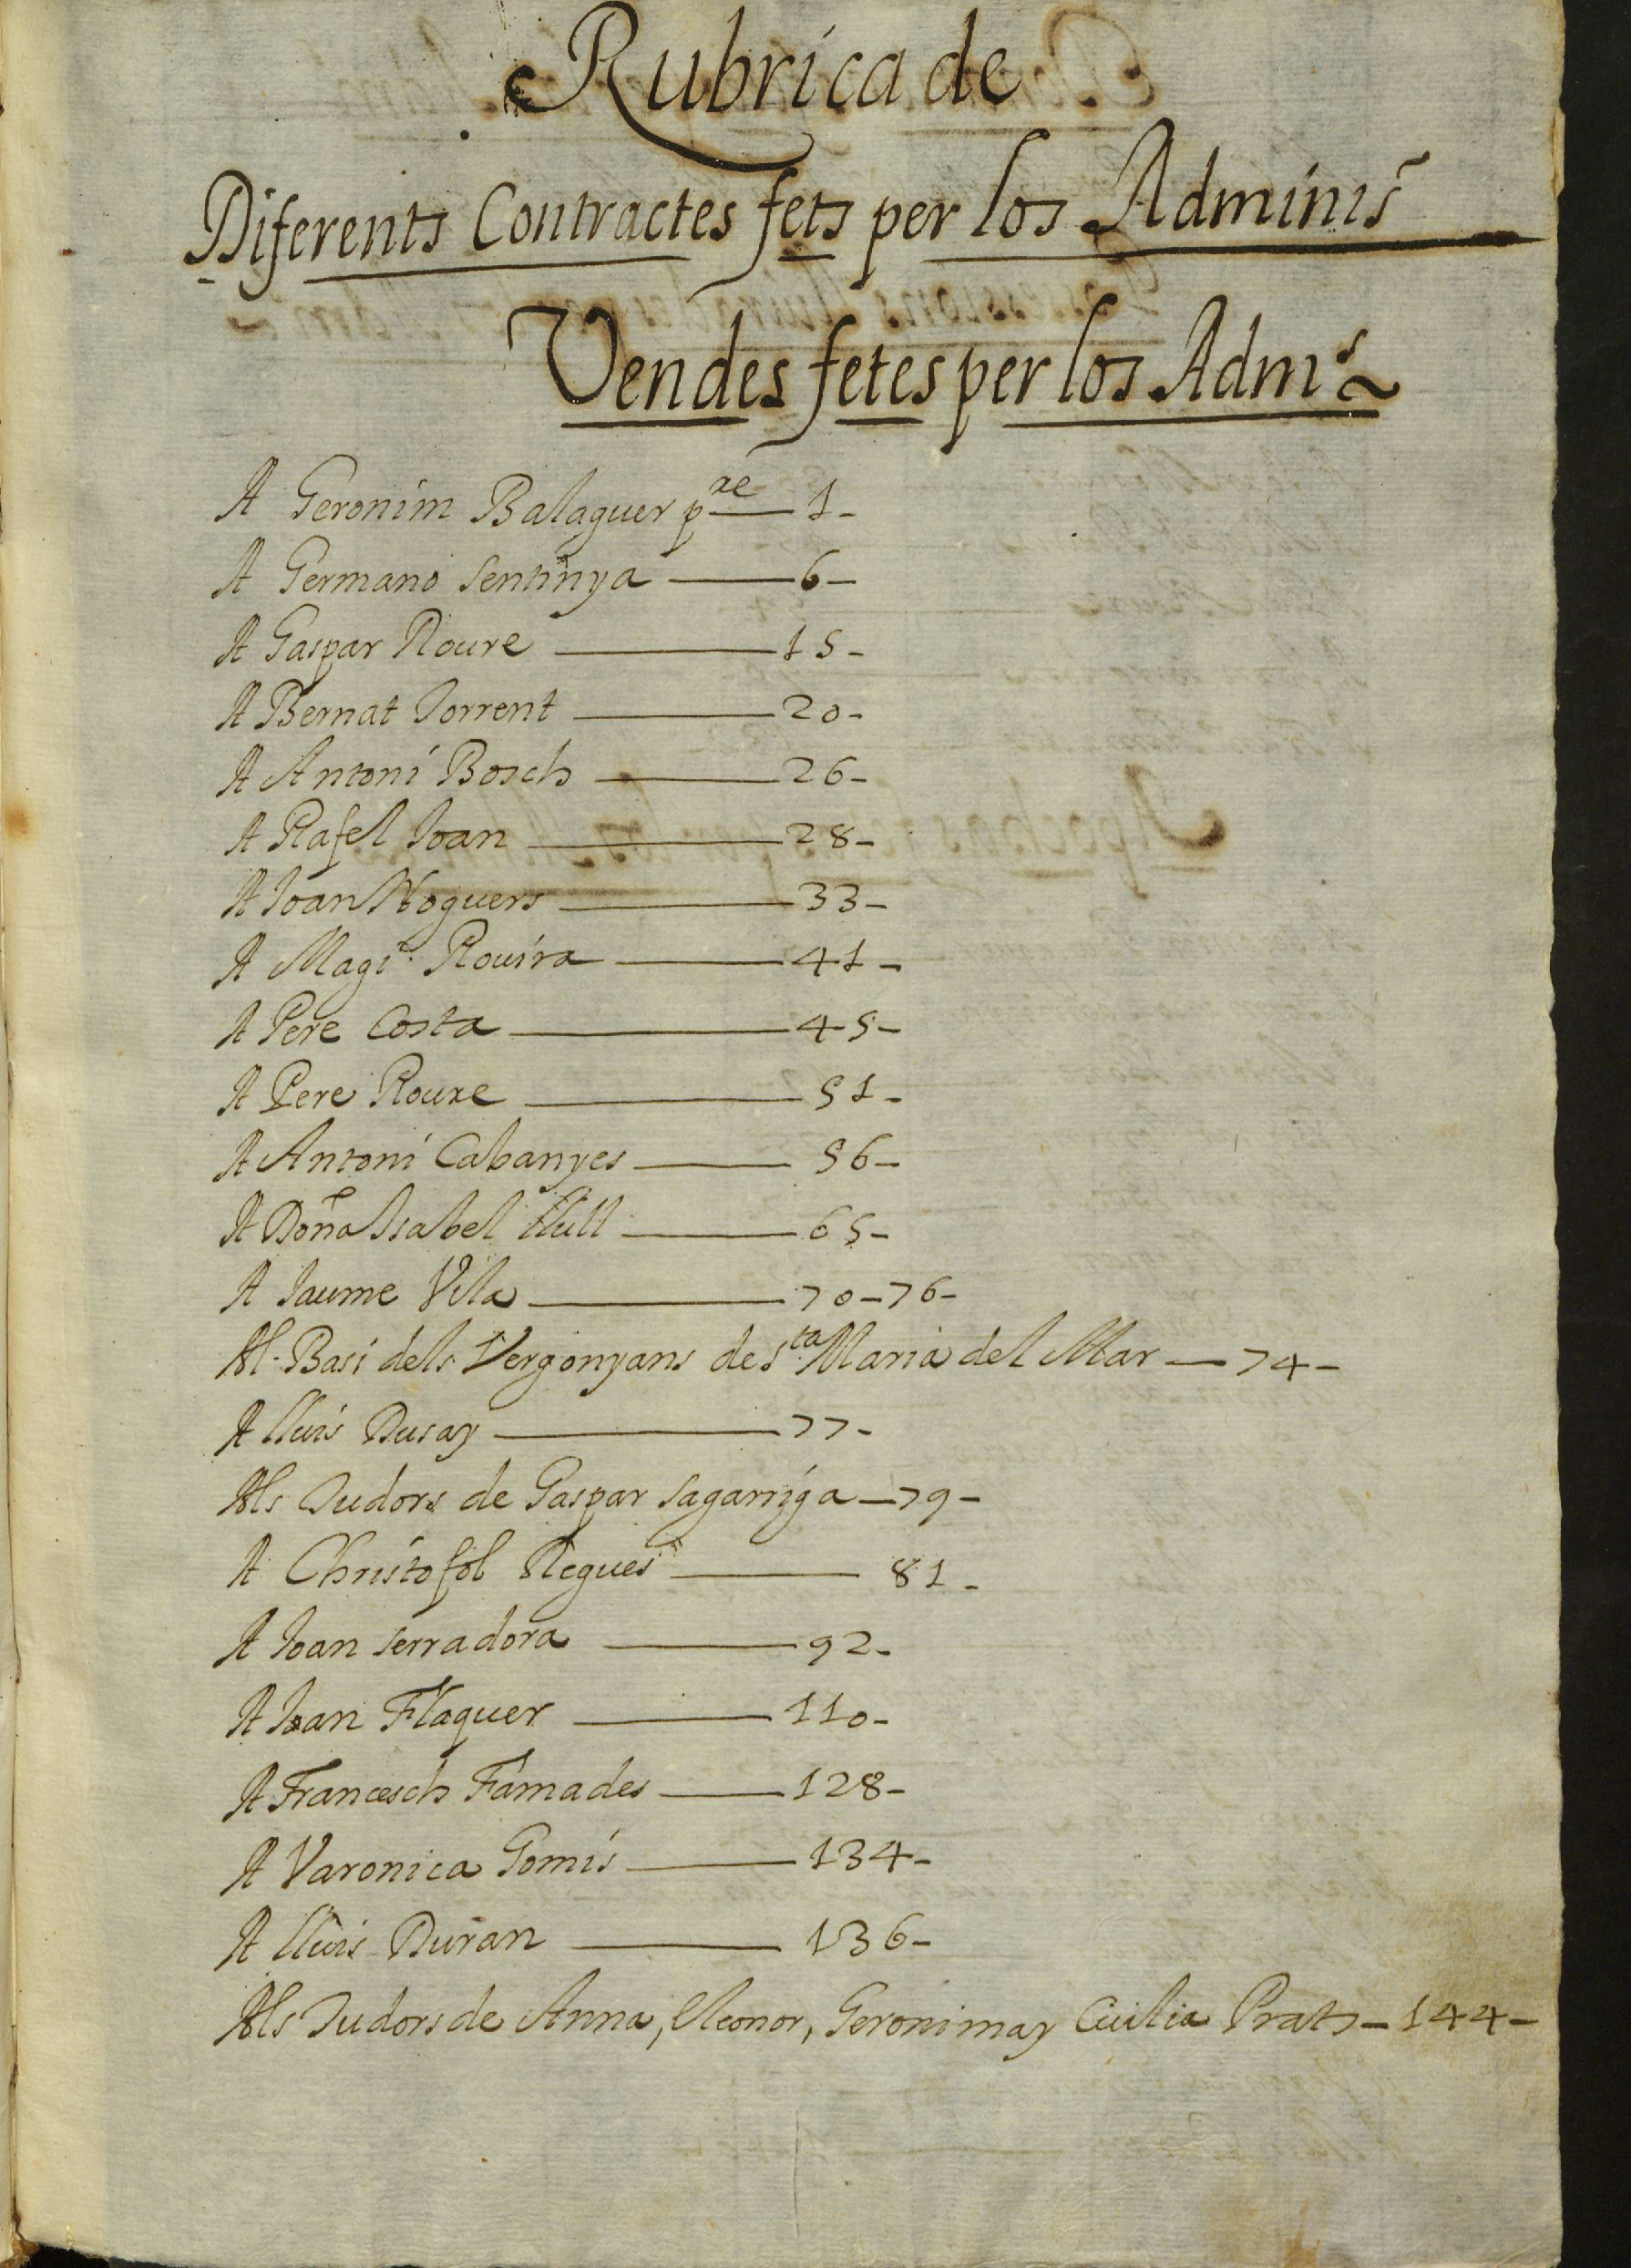 Rubrica de
Diferents Contractes fets per los Adminis~
Vendes fetes per los Adm.s
A Geronim Balaguer pre — 1 -
A Germano Sentinya — 6 -
A Gaspar Roure — 15 -
A Bernat Torrent — 20 -
A Antoni Bosch — 26 -
A Rafel Ioan — 28 -
A Ioan Noguers — 33 -
A Magi Rouira — 41 -
A Pere Costa — 45 -
A Pere Roure — 51 -
A Antoni Cabanyes — 56 -
A Doña Isabel Llull — 65 -
A Iaume Vila — 70 - 76 -
Al Basi dels Vergonyans de S.ta Maria del Mar — 74 -
A Lluis Dusay — 77 -
Als Tudors de Gaspar Sagarriga — 79 -
A Christofol Regues — 81 -
A Ioan Serradora — 92 -
A Ioan Flaquer — 110 -
A Francesch Famades — 128 -
A Varonica Gomis — 134 -
A Lluis Duran — 136 -
Als Tudors de Anna, Eleonor, Geronima y Cicilia Prats - 144 -